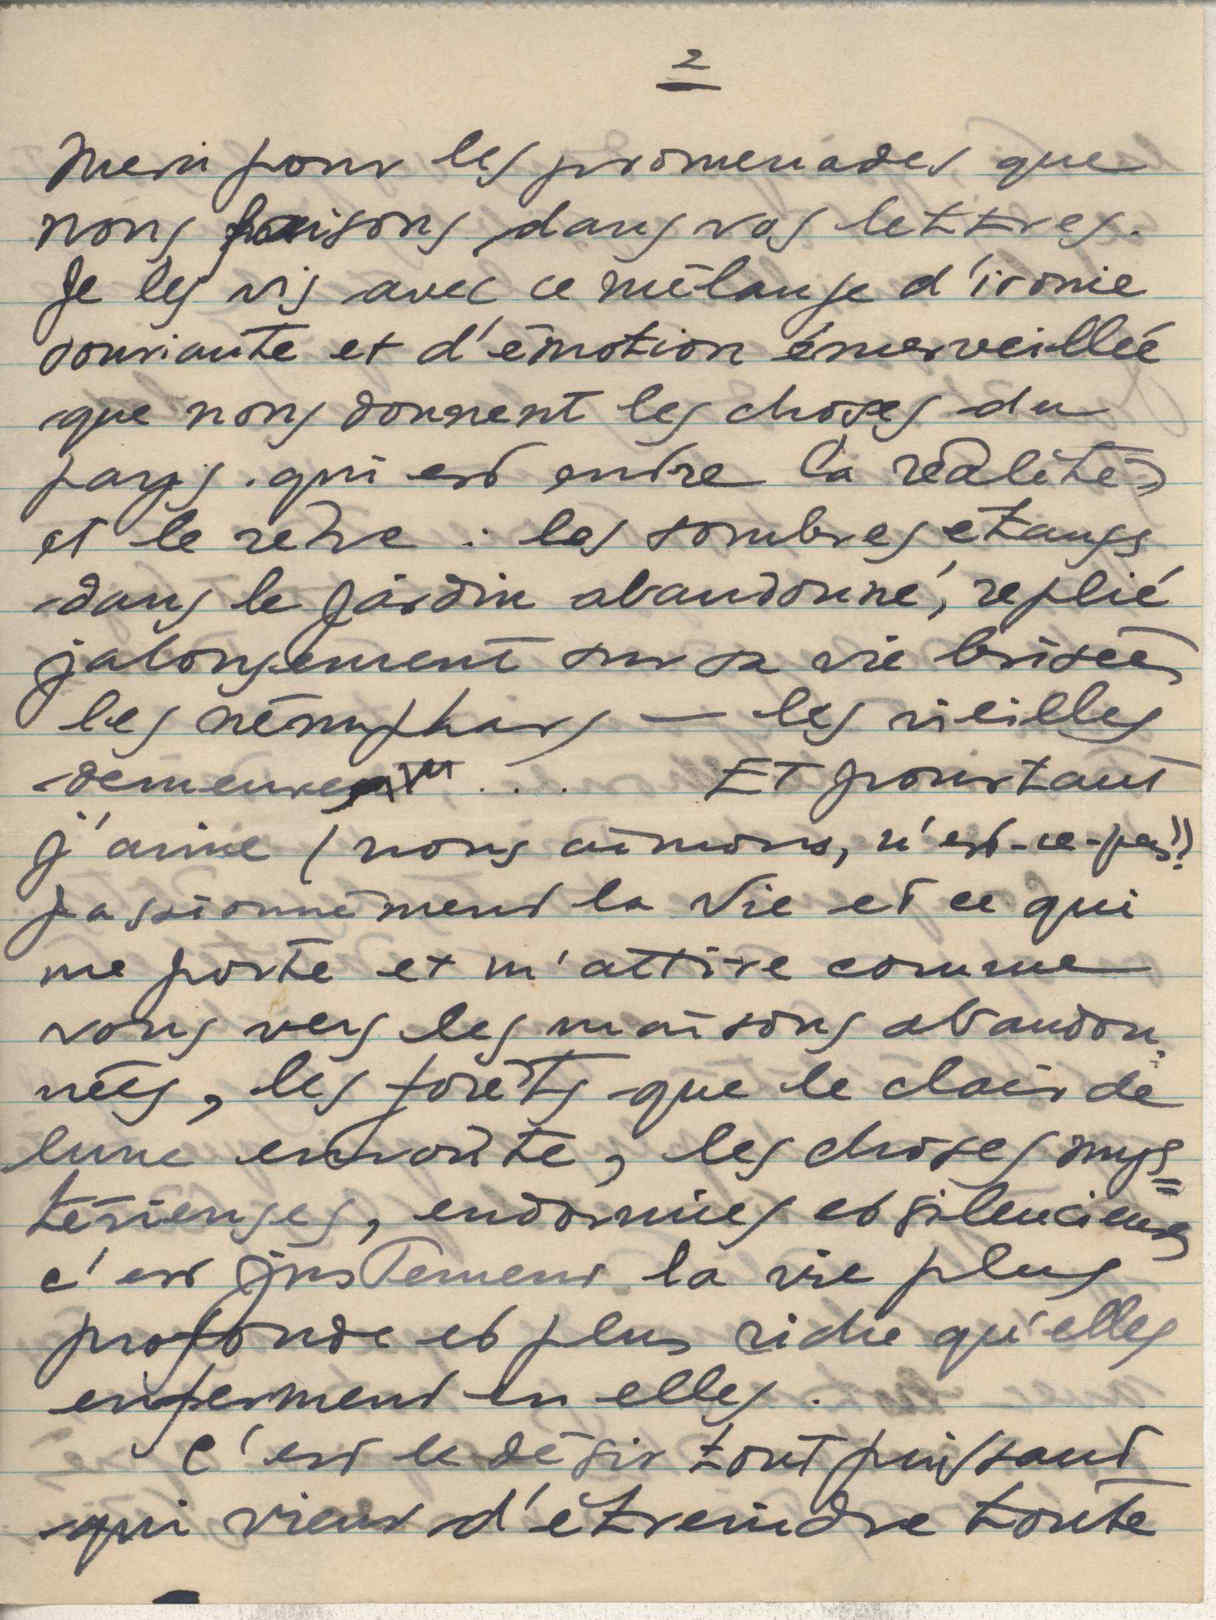 2
Merci pour les promenades que
nous faisons dans vos lettres.
Je les vis avec ce mélange d'ironie
souriante et d'émotion émerveillée
que nous donnent les choses du
pays qui est entre la réalité
et le rêve : les sombres étangs
dans le jardin abandonné, replié
jalousement sur sa vie brisée
les nénuphars — les vieilles
demeures ... Et pourtant
j'aime (nous aimons, n'est-ce-pas?)
passionnément la Vie et ce qui
me porte et m'attire comme
vous vers les maisons abandon-
nées, les forêts que le clair de
lune envoûte, les choses mys=
térieuses, endormies et silencieuses
c'est justement la vie plus
profonde et plus riche qu'elles
enferment en elles.
C'est le désir tout puissant
qui vient d'étreindre toute